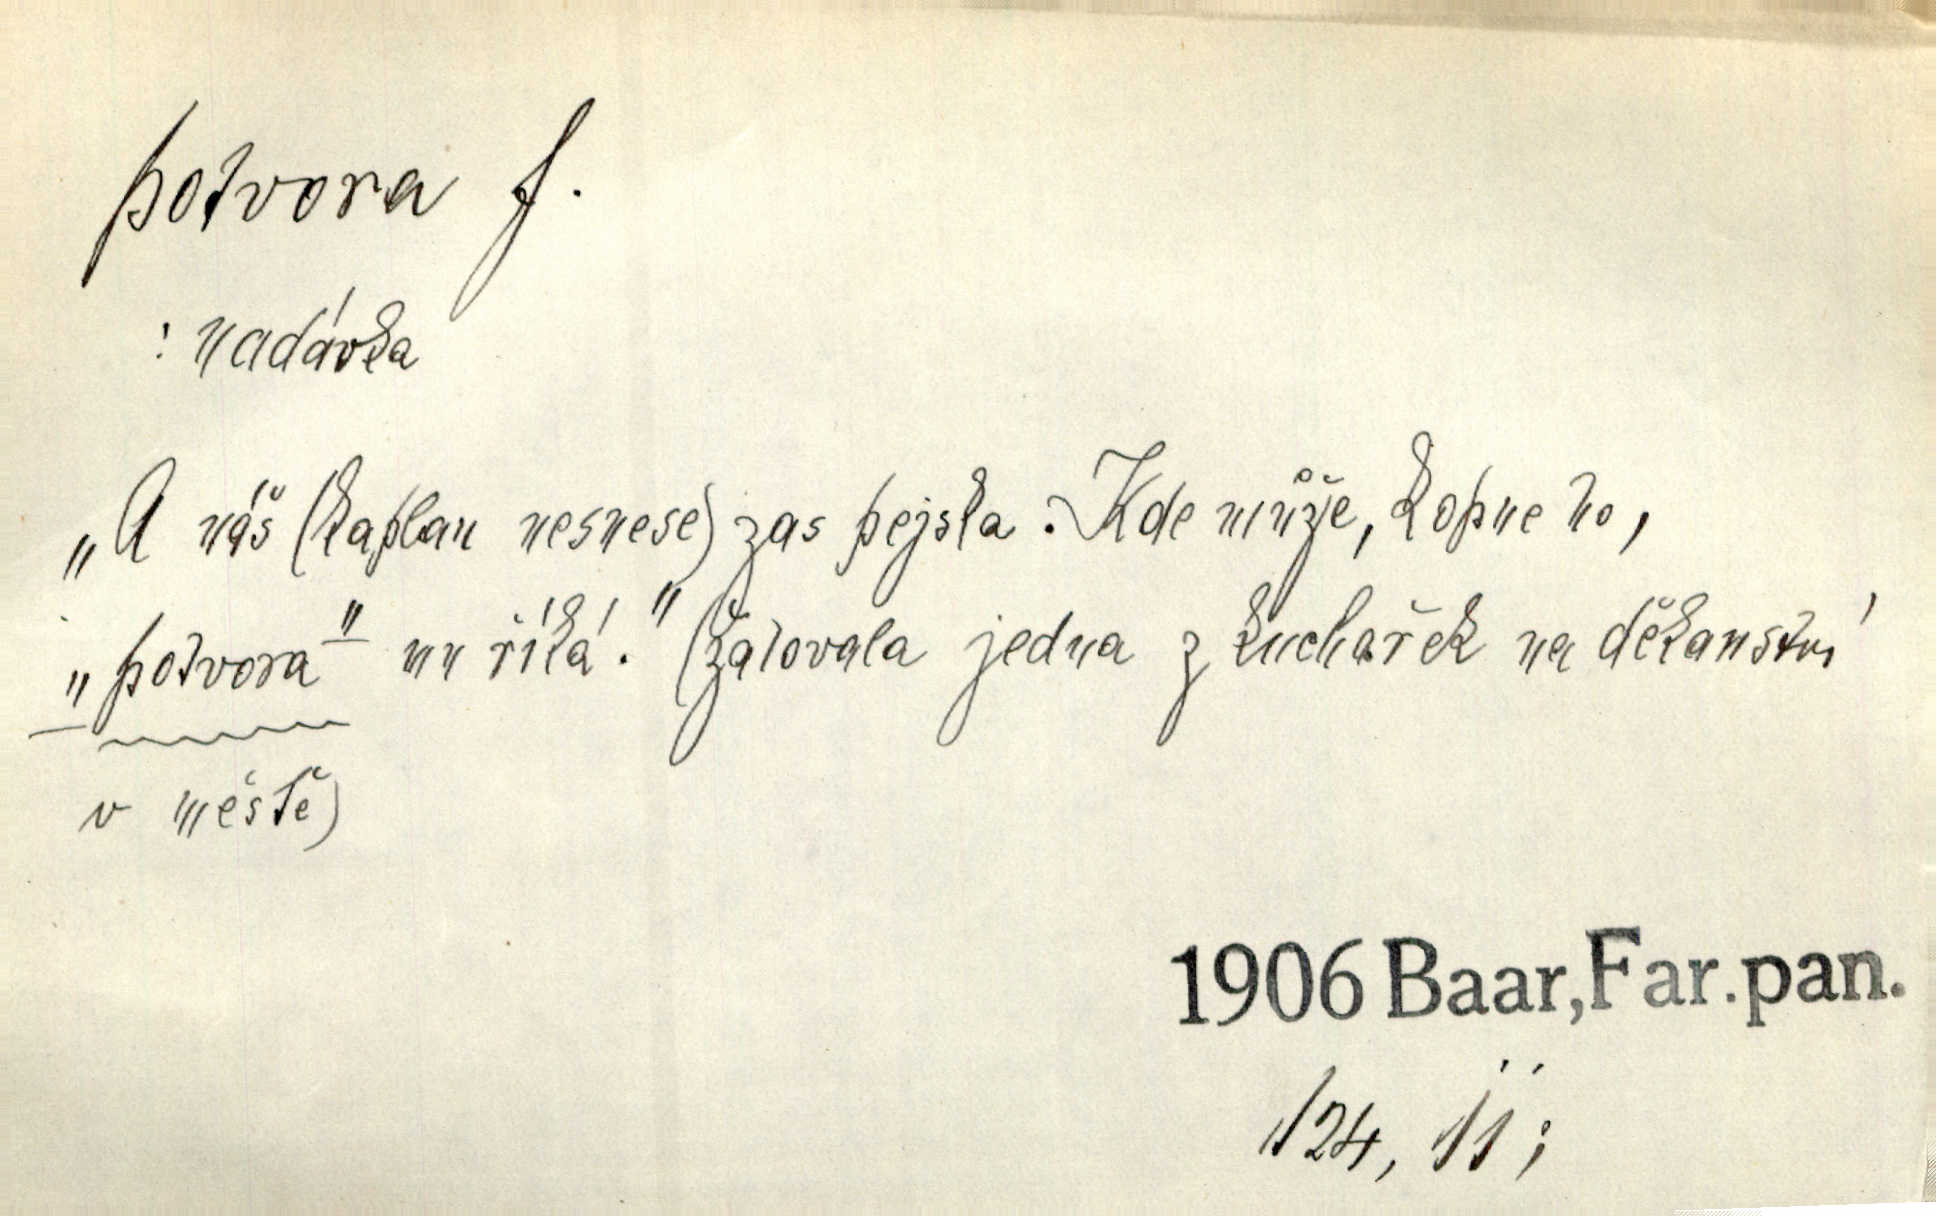 potvora f.
: nadávka
„A náš (kaplan nesnese) zas pejska. Kde může, kopne ho,
„potvora" mu říká." (žalovala jedna z kuchařek na děkanství
v městě)
1906 Baar, Far. pan.
124, ii;